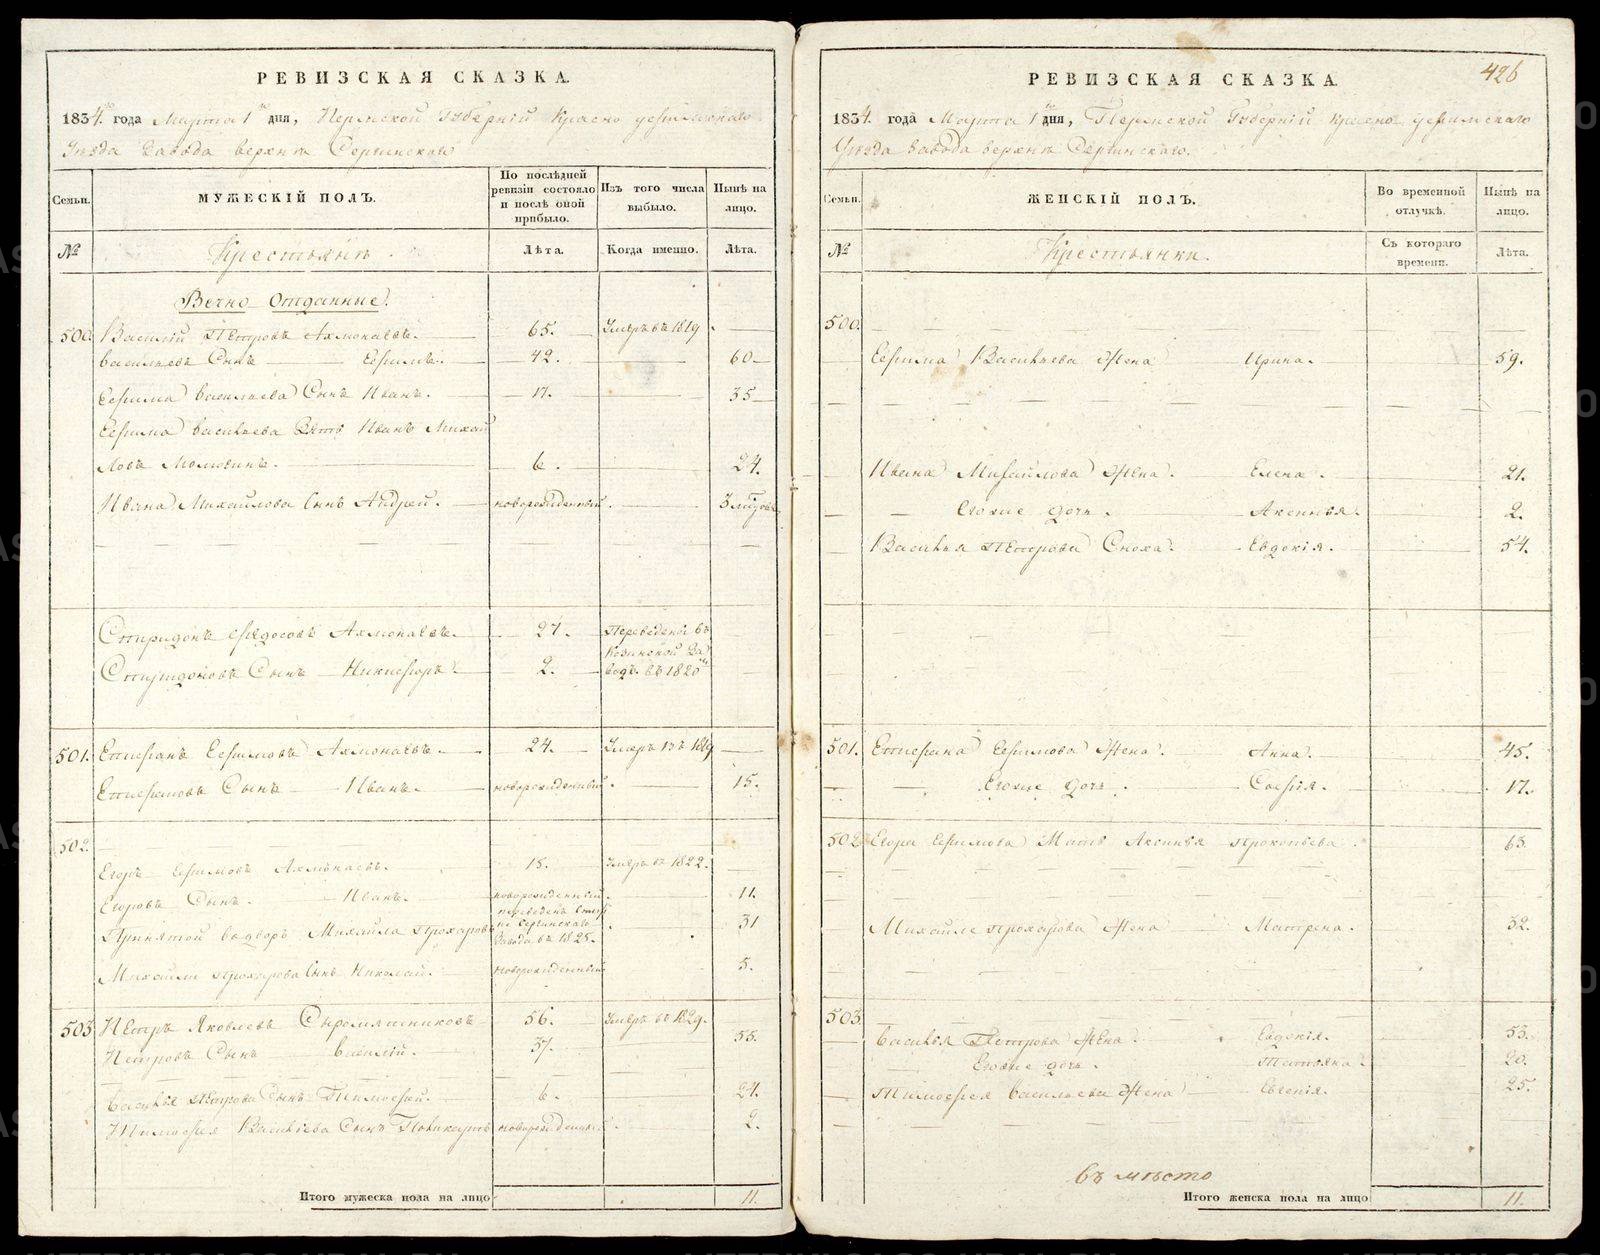 РЕВИЗСКАЯ СКАЗКА.
1834 года Марта 1 дня, Пермской Губерніи Красно уфимскаго
Уѣзда Завода верхнѣ Сергинскаго
Семьи.
МУЖЕСКІЙ ПОЛЪ.
По послѣдней ревизіи состояло и послѣ оной прибыло.
Изъ того числа выбыло.
Нынѣ на лицо.
№
Крестьянѣ
Лѣта.
Когда именно.
Лѣта.
Вечно Отданные.
500. Василій Петровъ 65. Умеръ въ 1819
Васильевъ Сынъ Ефимъ. 42. 60
Ефима Васильева Сынъ Иванъ. 17. 35
Ефима Васильева Зять Иванъ Михай
ловъ 6. 24.
Ивана Михайлова Сынъ Андрей. новорожденный.
Спиридонъ 27. Переведены въ
Спиридоновъ Сынъ Никифоръ. 2. водъ въ 1820
501. Стефанъ Ефимовъ 24. Умеръ въ 1819
Стефановъ Сынъ Иванъ. новорожденный. 15.
502.
Егоръ Ефимовъ 15. Умеръ въ 1822.
Егоровъ Сынъ. Иванъ. новорожденный. 11.
Принятой Михайла Прохоровъ 31
Сергинскаго
Завода въ 1825.
Михайли Прохорова Сынъ Николай. новорожденный 5.
503 Петръ Яковлевъ Сыромятниковъ 56. Умеръ въ 1829.
Петровъ Сынъ Василій. 37. 55.
Васильѧ Петрова Сынъ Тимофей. 6. 24.
Тимофея Васильева Сынъ новорожденный 2.
Итого мужеска пола на лицо 11.
РЕВИЗСКАЯ СКАЗКА.
426
1834. года Марта 1 дня, Пермской Губерніи Красно уфимскаго
Уѣзда Завода верхнѣ Сергинскаго.
Семьи.
ЖЕНСКІЙ ПОЛЪ.
Во временной отлучкѣ.
Нынѣ на лицо.
№
Крестьянки.
Съ котораго времени.
Лѣта.
500.
Ефима Васильева Жена Ирина. 59.
Ивана Михайлова Жена. Елена. 21.
Егоже дочь. Аксинья. 2.
Василья Петрова Сноха. Евдокія. 54.
501. Стефана Ефимова Жена. Анна. 45.
Егоже дочь. Софія. 17.
502 Егора Ефимова Мать Аксинья Прокопьева. 63.
Михайле Прохорова Жена Матрена. 32.
503
Василья Петрова Жена. Евдокія. 53.
Егоже дочь. Татьяна. 20.
Тимофея Васильева Жена Евгенія. 25.
въ мѣсто
Итого женска пола на лицо 11.